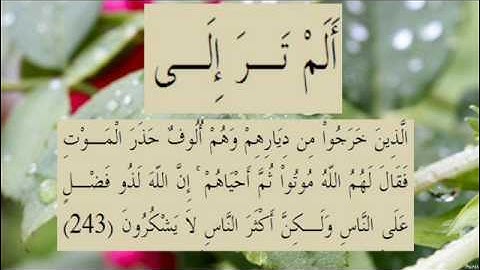 أَلَمْ تَـــرَ إِلَـــى
الَّذِينَ خَرَجُواْ مِن دِيَارِهِمْ وَهُمْ أُلُوفٌ حَذَرَ الْمَـــوْتِ
فَقَالَ لَهُمُ اللّهُ مُوتُواْ ثُمَّ أَحْيَاهُمْ ۚ إِنَّ اللّهَ لَذُو فَضْـــلٍ
عَلَى النَّاسِ وَلَـــكِنَّ أَكْثَرَ النَّاسِ لاَ يَشْكُرُونَ (243)